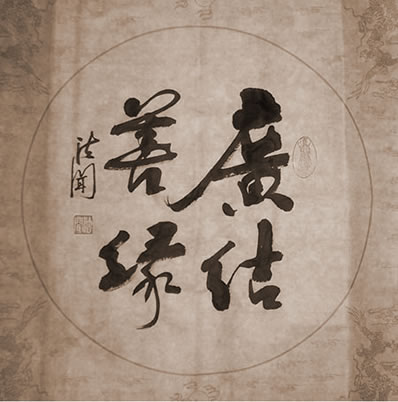 廣結
善緣
法聞